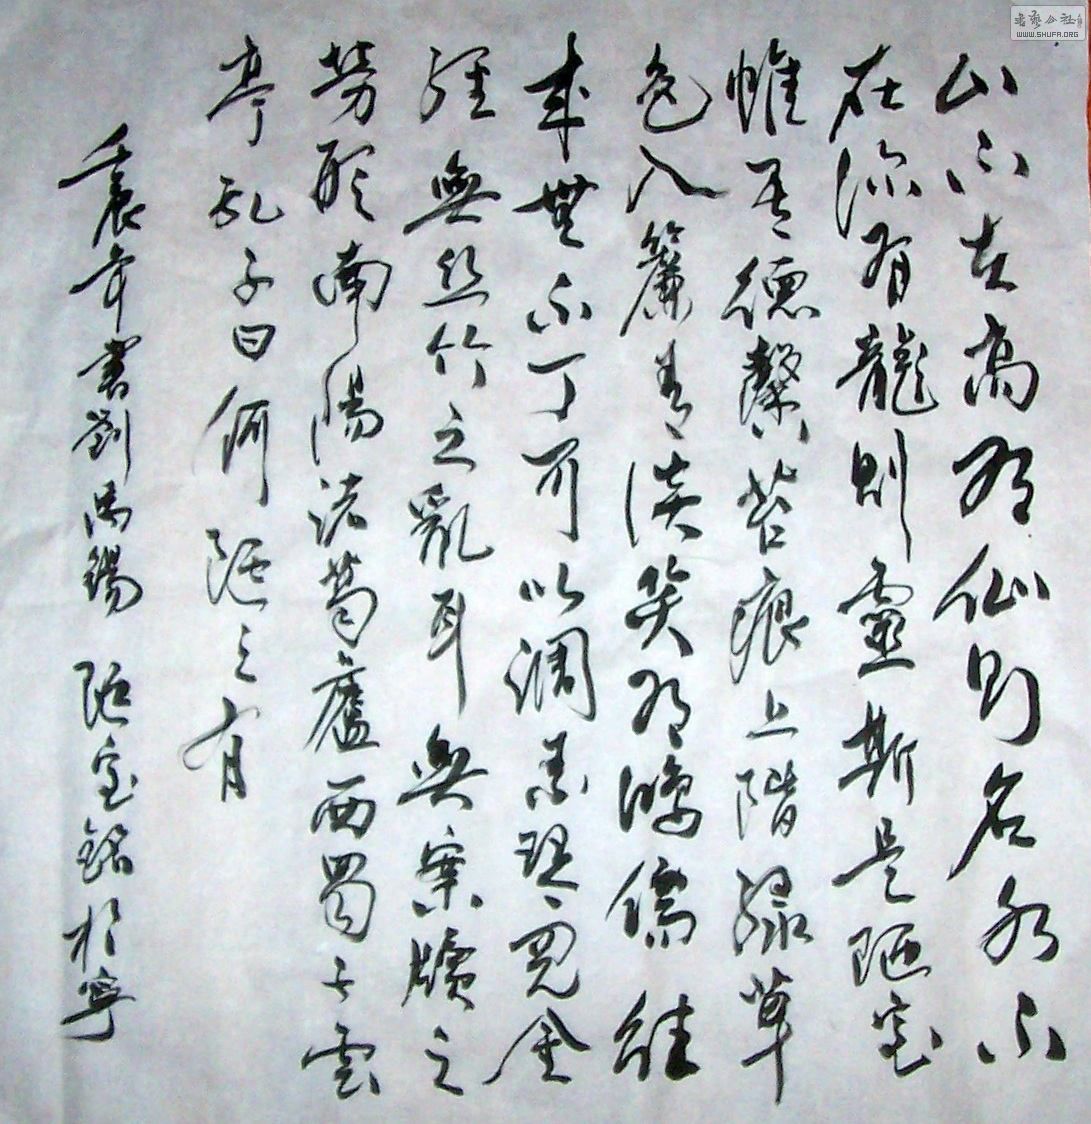 山不在高有仙则名水不
在深有龍则靈斯是陋室
惟吾德馨苔痕上階緑草
色入簾青谈笑有鴻儒往
来無丁可以調素琴閱金
經無丝竹之亂耳無案牘之
勞形南陽诸葛廬西蜀子雲
亭孔子曰何陋之有
壬辰年書劉禹錫 陋室銘於寧
書藝公社
WWW.SHUFA.ORG